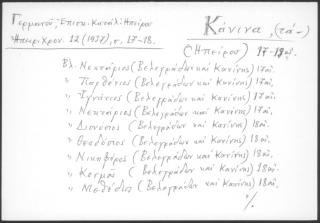 Γερμανοῦ, Ἐπισκ. Καταλ. Ἠπείρου
Ἠπειρ. Χρον. 12 (1937), σ. 17-18.
Κάνινα, (τά-)
(Ἤπειρος) 17-18αἰ.
Βλ. Νεκτάριος (Βελεγράδων καί Κανίνης) 17αἰ.
" Παρθένιος (Βελεγράδων καί Κανίνης) 17αἰ.
" Ἰγνάτιος (Βελεγράδων καί Κανίνης) 17αἰ.
" Νεκτάριος (Βελεγράδων καί Κανίνης) 17αἰ.
" Διονύσιος (Βελεγράδων καί Κανίνης) 18αἰ.
" Θεοδόσιος (Βελεγράδων καί Κανίνης) 18αἰ.
" Νικηφόρος (Βελεγράδων καί Κανίνης) 18αἰ.
" Κοσμᾶ (Βελεγράδων καί Κανίνης) 18αἰ.
" Μεθόδιος (Βελεγράδων καί Κανίνης) 18αἰ.
%